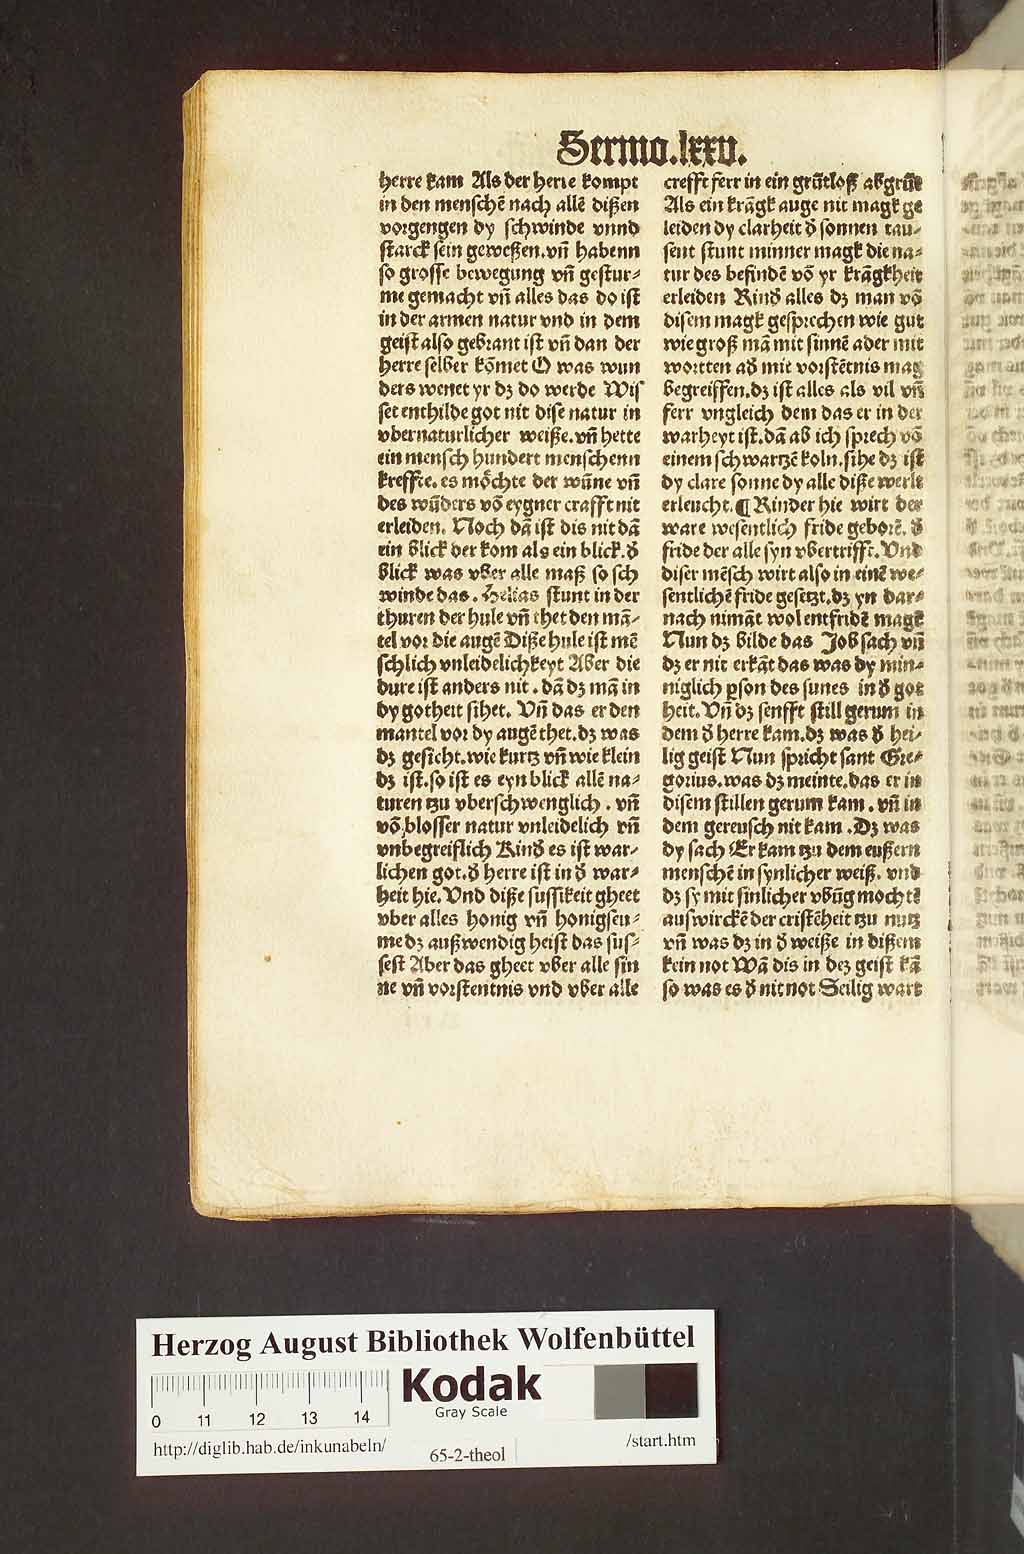 Sermo.lxxv.
herre kam Als der herre kompt
in den menschē nach allē dißen
vorgengen dy schwinde vnnd
starck sein geweßen.vñ habenn
so grosse bewegung vñ gestur⸗
me gemacht vñ alles das do ist
in der armen natur vnd in dem
geist also gebrant ist vñ dan der
herre selber kōmet O was wun
ders wenet yr dz do werde Wis
set enthilde got nit dise natur in
vbernaturlicher weiße.vñ hette
ein mensch hundert menschenn
kreffte.es mo᷑chte der wūne vñ
des wūders vō eygner crafft nit
erleiden. Noch dā ist dis nit dā
ein blick der kom als ein blick.d᷑
blick was vber alle maß so sch
winde das. Helias stunt in der
thuren der hule vñ thet den mā⸗
tel vor die augē Diße hule ist mē
schlich vnleidelichkeyt Aber die
dure ist anders nit. dā dz mā in
dy gotheit sihet. Vñ das er den
mantel vor dy augē thet.dz was
dz gesicht.wie kurtz vñ wie klein
dz ist.so ist es eyn blick allē na⸗
turen tzu vberschwenglich. vñ
vō blosser natur vnleidelich vñ
vnbegreiflich Kind᷑ es ist war⸗
lichen got.d᷑ herre ist in d᷑ war⸗
heit hie.Vnd diße sussikeit gheet
vber alles honig vñ honigseu⸗
me dz außwendig heist das sus⸗
sest Aber das gheet vber alle sin
ne vñ vorstentnis vnd vber alle
crefft ferr in ein grūtloß abgrūt
Als ein krāgk auge nit magk ge
leiden dy clarheit d᷑ sonnen tau⸗
sent stunt minner magk die na⸗
tur des befindē vō yr krāgkheit
erleiden Kind᷑ alles dz man vō
disem magk gesprechen wie gut
wie groß mā mit sinnē ader mit
wortten ad᷑ mit vorstētnis mag
begreiffen.dz ist alles als vil vñ
ferr vngleich dem das er in der
warheyt ist.dā ab ich sprech vō
einem schwartzē koln.sihe dz ist
dy clare sonne dy alle diße werlt
erleucht.¶ Kinder hie wirt der
ware wesentlich fride geborē.d᷑
fride der alle syn vbertrifft.Vnd
diser mēsch wirt also in einē we⸗
sentlichē fride gesetzt.dz yn dar⸗
nach nimāt wol entfridē magk
Nun dz bilde das Job sach vñ
dz er nit erkāt das was dy min⸗
niglich pson des sunes in d᷑ got
heit.Vñ dz senfft still gerum in
dem d᷑ herre kam.dz was d᷑ hei⸗
lig geist Nun spricht sant Gre⸗
gorius.was dz meinte.das er in
disem stillen gerum kam. vñ in
dem gereusch nit kam. Dz was
dy sach Er kam tzu dem eußern
menschē in synlicher weiß. vnd
dz sy mit sinlicher vbūg mochtē
auswirckē der cristēheit tzu nutz
vñ was dz in d᷑ weiße in dißem
kein not Wā dis in dez geist kā
so was es d᷑ nit not Seilig wart
Herzog August Bibliothek Wolfenbüttel
Kodak
Gray Scale
0 11 12 13 14
http://diglib.hab.de/inkunabeln/
65-2-theol
/start.htm